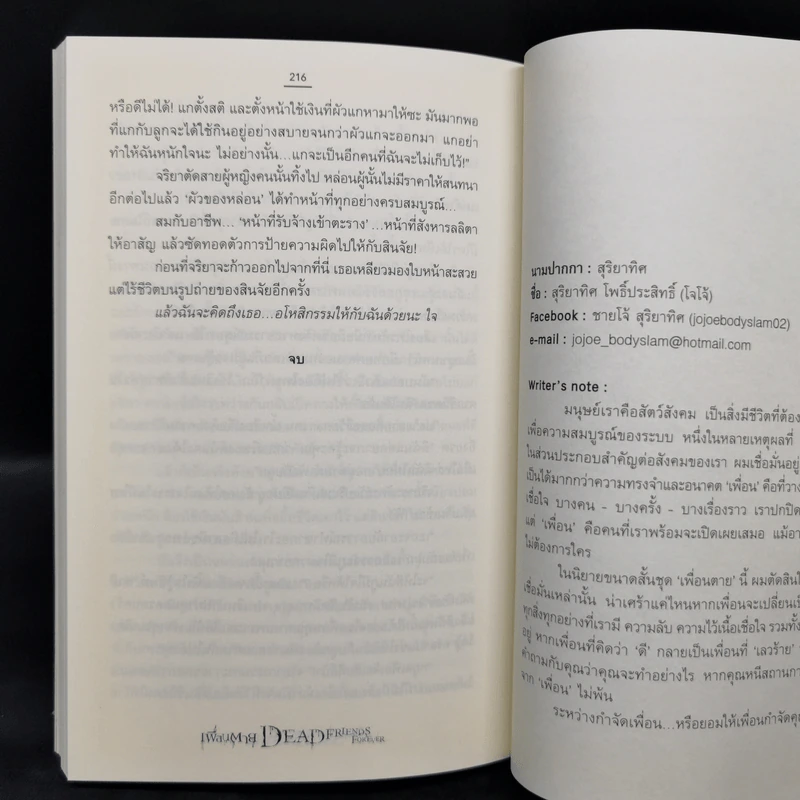 216
หรือดีไม่ได้! แกตั้งสติ และตั้งหน้าใช้เงินที่ผัวแกหามาให้ซะ มันมากพอ
ที่แกกับลูกจะได้ใช้กินอยู่อย่างสบายจนกว่าผัวแกจะออกมา แกอย่า
ทำให้ฉันหนักใจนะ ไม่อย่างนั้น...แกจะเป็นอีกคนที่ฉันจะไม่เก็บไว้!"
จริยาตัดสายผู้หญิงคนนั้นทิ้งไป หล่อนผู้นั้นไม่มีราคาให้สนทนา
อีกต่อไปแล้ว 'ผัวของหล่อน' ได้ทำหน้าที่ทุกอย่างครบสมบูรณ์...
สมกับอาชีพ... 'หน้าที่รับจ้างเข้าตะราง' ...หน้าที่สังหารลลิตา
ให้อาสัญ แล้วซัดทอดตัวการป้ายความผิดไปให้กับสินจัย!
ก่อนที่จริยาจะก้าวออกไปจากที่นี่ เธอเหลียวมองใบหน้าสะสวย
แต่ไร้ชีวิตบนรูปถ่ายของสินจัยอีกครั้ง
แล้วฉันจะคิดถึงเธอ...อโหสิกรรมให้กับฉันด้วยนะ ใจ
จบ
เพื่อนตาย DEAD FRIENDS FOREVER
นามปากกา : สุริยาทิศ
ชื่อ : สุริยาทิศ โพธิ์ประสิทธิ์ (โจโจ้)
Facebook : ชายโจ้ สุริยาทิศ (jojoebodyslam02)
e-mail : jojoe_bodyslam@hotmail.com
Writer's note :
มนุษย์เราคือสัตว์สังคม เป็นสิ่งมีชีวิตที่ต้อง
เพื่อความสมบูรณ์ของระบบ หนึ่งในหลายเหตุผลที่
ในส่วนประกอบสำคัญต่อสังคมของเรา ผมเชื่อมั่นอยู่
เป็นได้มากกว่าความทรงจำและอนาคต 'เพื่อน' คือที่วาง
เชื่อใจ บางคน - บางครั้ง - บางเรื่องราว เราปกปิด
แต่ 'เพื่อน' คือคนที่เราพร้อมจะเปิดเผยเสมอ แม้อา
ไม่ต้องการใคร
ในนิยายขนาดสั้นชุด 'เพื่อนตาย' นี้ ผมตัดสินใ
เชื่อมั่นเหล่านั้น น่าเศร้าแค่ไหนหากเพื่อนจะเปลี่ยนเป็
ทุกสิ่งทุกอย่างที่เรามี ความลับ ความไว้เนื้อเชื่อใจ รวมทั้ง
อยู่ หากเพื่อนที่คิดว่า 'ดี' กลายเป็นเพื่อนที่ 'เลวร้าย'
คำถามกับคุณว่าคุณจะทำอย่างไร หากคุณหนีสถานกา
จาก 'เพื่อน' ไม่พ้น
ระหว่างกำจัดเพื่อน...หรือยอมให้เพื่อนกำจัดคุณ